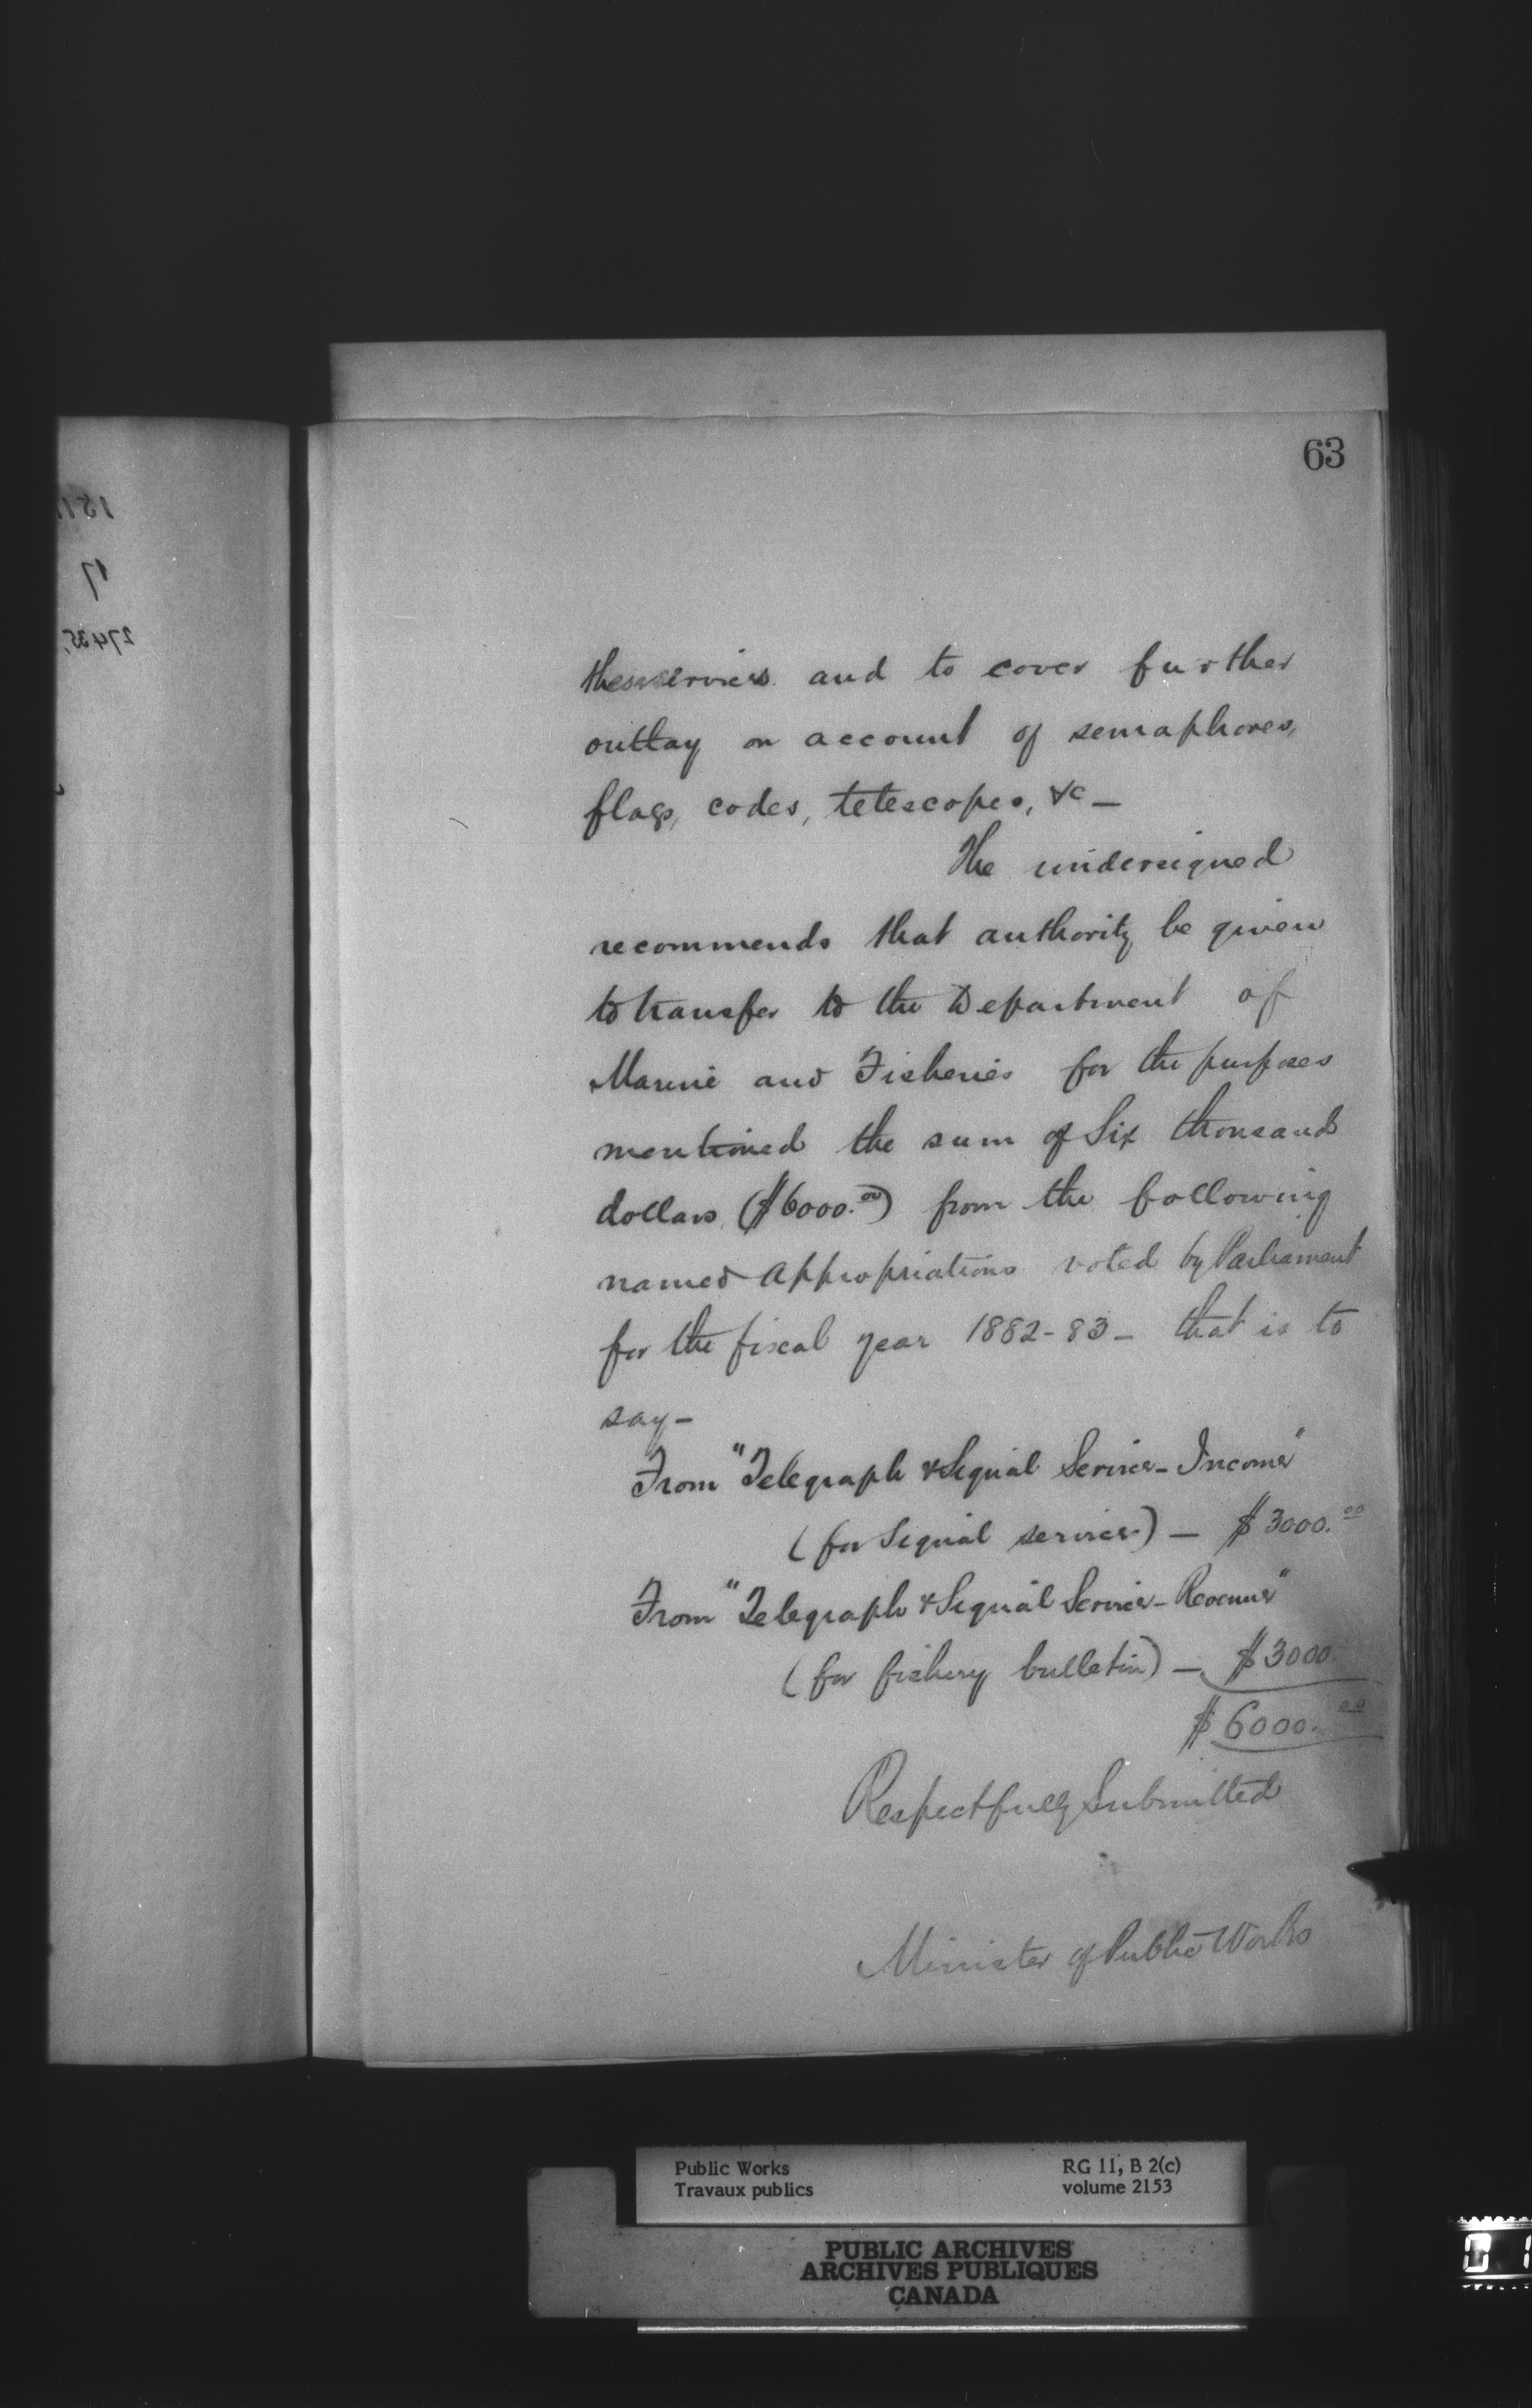 63
these services and to cover further
outlay on account of semaphores,
flags, codes, telescopes, &c —
The undersigned
recommends that authority be given
to transfer to the Department of
Marine and Fisheries for the purposes
mentioned the sum of Six thousand
dollars ($6000.00) from the following
named appropriations voted by Parliament
for the fiscal year 1882-83 — that is to
say —
From "Telegraph & Signal Service - Income"
(for Signal service) — $3000.00
From "Telegraph & Signal Service - Revenue"
(for fishery bulletin) — $3000.
$6000.00
Respectfully Submitted
Minister of Public Works
Public Works RG 11, B 2(c)
Travaux publics volume 2153
PUBLIC ARCHIVES
ARCHIVES PUBLIQUES
CANADA